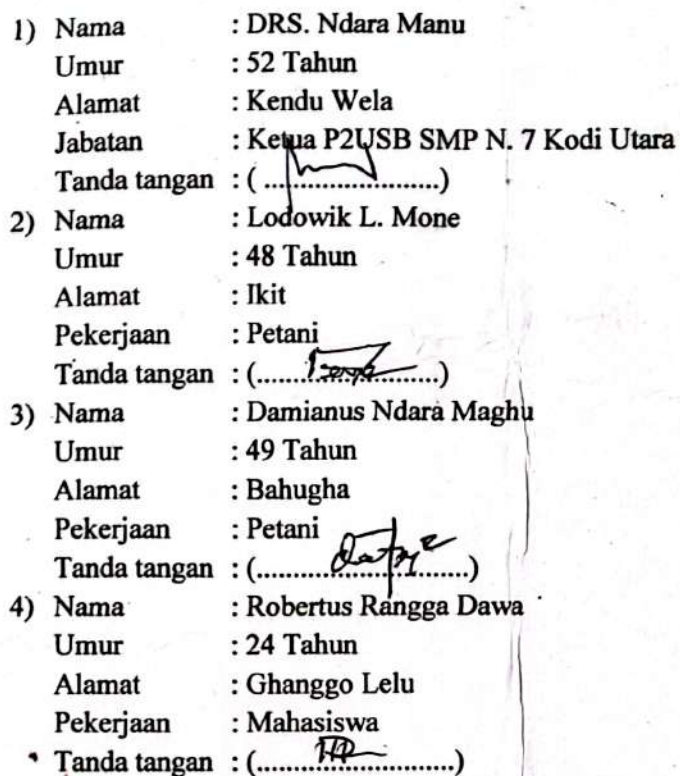 1) Nama : DRS. Ndara Manu
Umur : 52 Tahun
Alamat : Kendu Wela
Jabatan : Ketua P2USB SMP N. 7 Kodi Utara
Tanda tangan : ( ..........................)
2) Nama : Lodowik L. Mone
Umur : 48 Tahun
Alamat : Ikit
Pekerjaan : Petani
Tanda tangan : (...........................)
3) Nama : Damianus Ndara Maghu
Umur : 49 Tahun
Alamat : Bahugha
Pekerjaan : Petani
Tanda tangan : (...............................)
4) Nama : Robertus Rangga Dawa
Umur : 24 Tahun
Alamat : Ghanggo Lelu
Pekerjaan : Mahasiswa
Tanda tangan : (.............................)